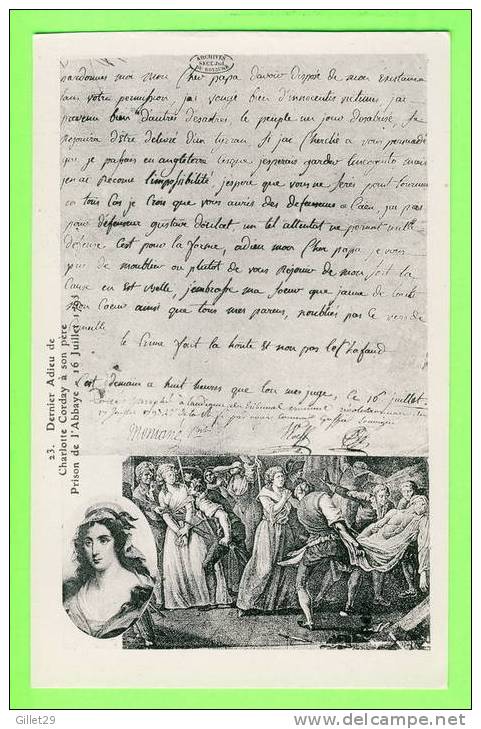 ARCHIVES
SECT. JUD.
DU ROYAUME
pardonnes moi mon Cher papa davoir disposé de mon existance
sans votre permission jai vangé bien d'innocentes victimes jai
prevenu bien d'autres desadres, le peuple un jour desabusé, se
rejouira d'être delivré d'un tyran Si jai Cherché a vous persuadé
que je passais en angleterre cesque jesperais garder lincognito mais
jen ai recone l'impossibilité, jespere que vous ne seres point tourmenté
en tous Cas je Crois que vous auriés des defenseurs a Caen, jai pris
pour défenseur gustave doulcet, un tel attentat ne permet nulle
défense Cest pour la forme, adieu mon Cher papa je vous
prie de moublier ou plutot de vous rejouir de mon sort la
Cause en est belle, jembrasse ma soeur que jaime de tout
mon Coeur ainsi que tous mes parens, noubliés pas Ce vers de
Corneille
le Crime fait la honte et non pas lechafaud
Cest demain a huit heures que lon me juge, Ce 16 juillet
Montané
Wolff
23. Dernier Adieu de
Charlotte Corday à son père
Prison de l'Abbaye - 16 Juillet 1793
Gillet29
www.delcampe.net